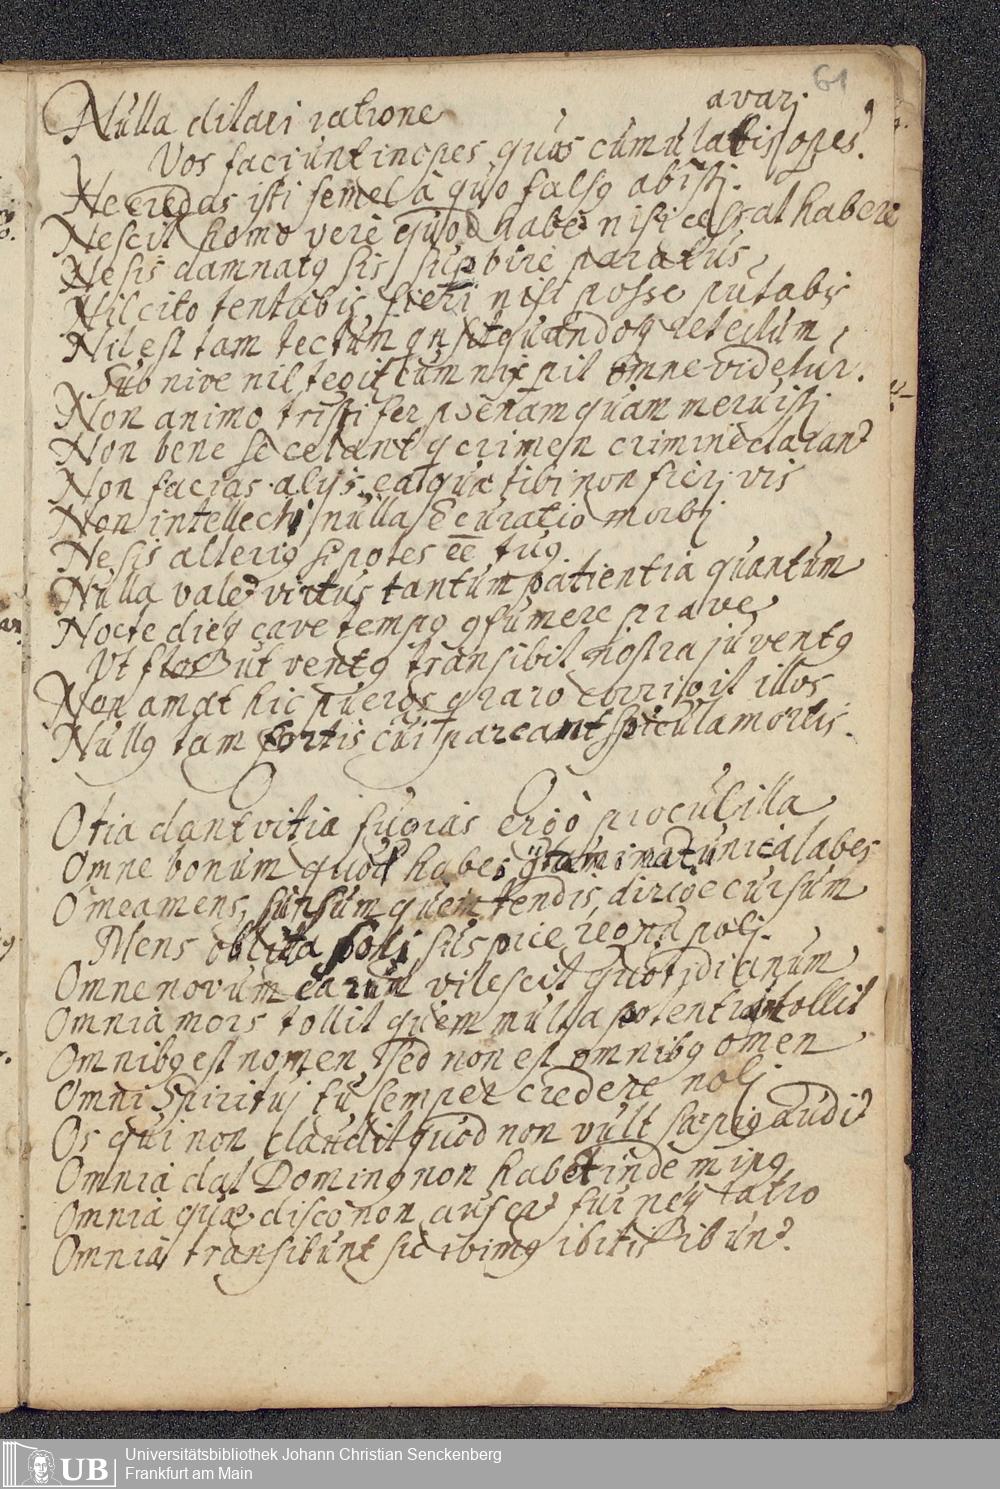 61
Nulla ditari ratione avarj
Vos faciunt inopes quas cumulatis opes.
Ne credas isti semel à quo falsꝯ abistj.
Nescit homo verè quod habet nisi cessat habere
Ne sis damnatꝯ sis subire paratus
Nil cito tentabis, fieri nisi posse putabis
Nil est tam tectum qn sit quandoq retectum,
Sub nive nil tegit cum nix pit omne videtur.
Non animo tristi fer poenam quam meruistj
Non bene se celant q crimen crimine clarant
Non facias alijs ea quae tibi non fierj vis
Non intellecti nulla ē curatio morbj
Ne sis alteriꝯ si potes ēē tuꝯ
Nulla valet virtus tantum patientia quantum
Nocte dieq cave tempꝯ ꝯsumere prave
Ut flos ut ventꝯ transibit nostra juventꝯ
Non amat hic pueros q raro corripit illos
Nullꝯ tam fortis cui parcant spicula mortis.
Otia dant vitia fugias ergò procul illa
Omne bonum quod habes ꝯtaminat unica labes
O mea mens, sursum quem tendis, dirige cursum
Mens oblita soli suspice regna polj.
Omne novum carum vilescit quotidianum
Omnia mors tollit quem multa potentia tollit
Omnibꝯ est nomen, sed non est omnibꝯ omen
Omni Spirituj tu semper credere nolj
Os qui non claudit quod non vult saepiꝯ audit
Omnia dat Dominꝯ non habet inde minꝯ
Omnia quae disco non aufert fur neq latro
Omnia transibunt sic ibimꝯ ibitis ibunt.
UB Universitätsbibliothek Johann Christian Senckenberg
Frankfurt am Main